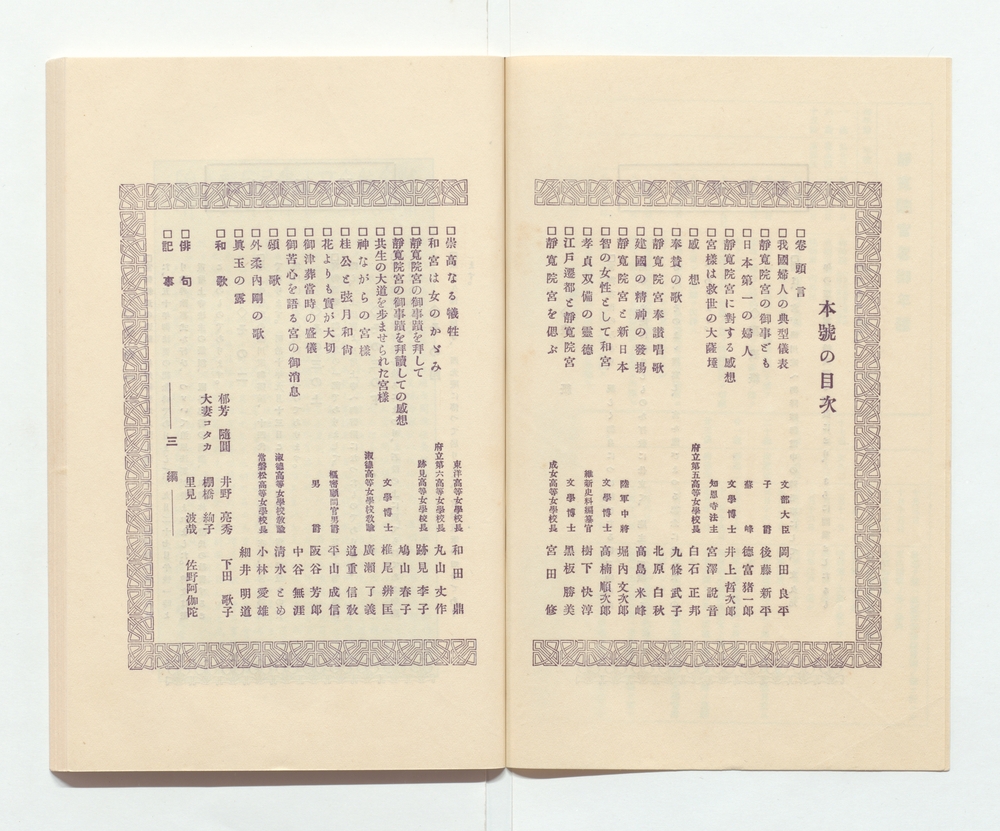 本號の目次
□卷頭言
□我國婦人の典型儀表 文部大臣 岡田良平
□靜寬院宮の御事ども 子爵 後藤新平
□日本第一の婦人 蘇峰 德富猪一郎
□靜寬院宮に對する感想 文學博士 井上哲次郎
□宮樣は救世の大薩埵 知恩寺法主 宮澤説音
□感想 府立第五高等女學校長 白石正邦
□奉賛の歌 九條武子
□靜寬院宮奉讃唱歌 北原白秋
□建國の精神の發揚 高島米峰
□靜寬院宮と新日本 陸軍中將 堀內文次郎
□智の女性として和宮 文學博士 高楠順次郎
□孝貞双備の靈德 維新史料編纂官 樹下快淳
□江戶遷都と靜寬院宮 文學博士 黑板勝美
□靜寬院宮を偲ぶ 成女高等女學校長 宮田修
□崇高なる犧牲 東洋高等女學校長 和田鼎
□和宮は女のかゞみ 府立第六高等女學校長 丸山丈作
□靜寬院宮の御事蹟を拜して 跡見高等女學校長 跡見李子
□靜寬院宮の御事蹟を拜讀しての感想 鳩山春子
□共生の大道を步ませられた宮樣 文學博士 椎尾辨匡
□神ながらの宮樣 淑德高等女學校敎諭 廣瀨了義
□桂公と弦月和尙 道重信敎
□花よりも實が大切 樞密顧問官男爵 平山成信
□御津葬當時の盛儀 男爵 阪谷芳郎
□御苦心を語る宮の御消息 中谷無涯
□頌歌 淑德高等女學校敎諭 清水とめ
□外柔內剛の歌 常磐松高等女學校長 小林愛雄
□眞玉の露 細井明道
□和歌 郁芳隨圓 井野亮秀 下田歌子
大妻コタカ 棚橋絢子
□俳句 里見波哉 佐野阿伽陀
□記事 三綱